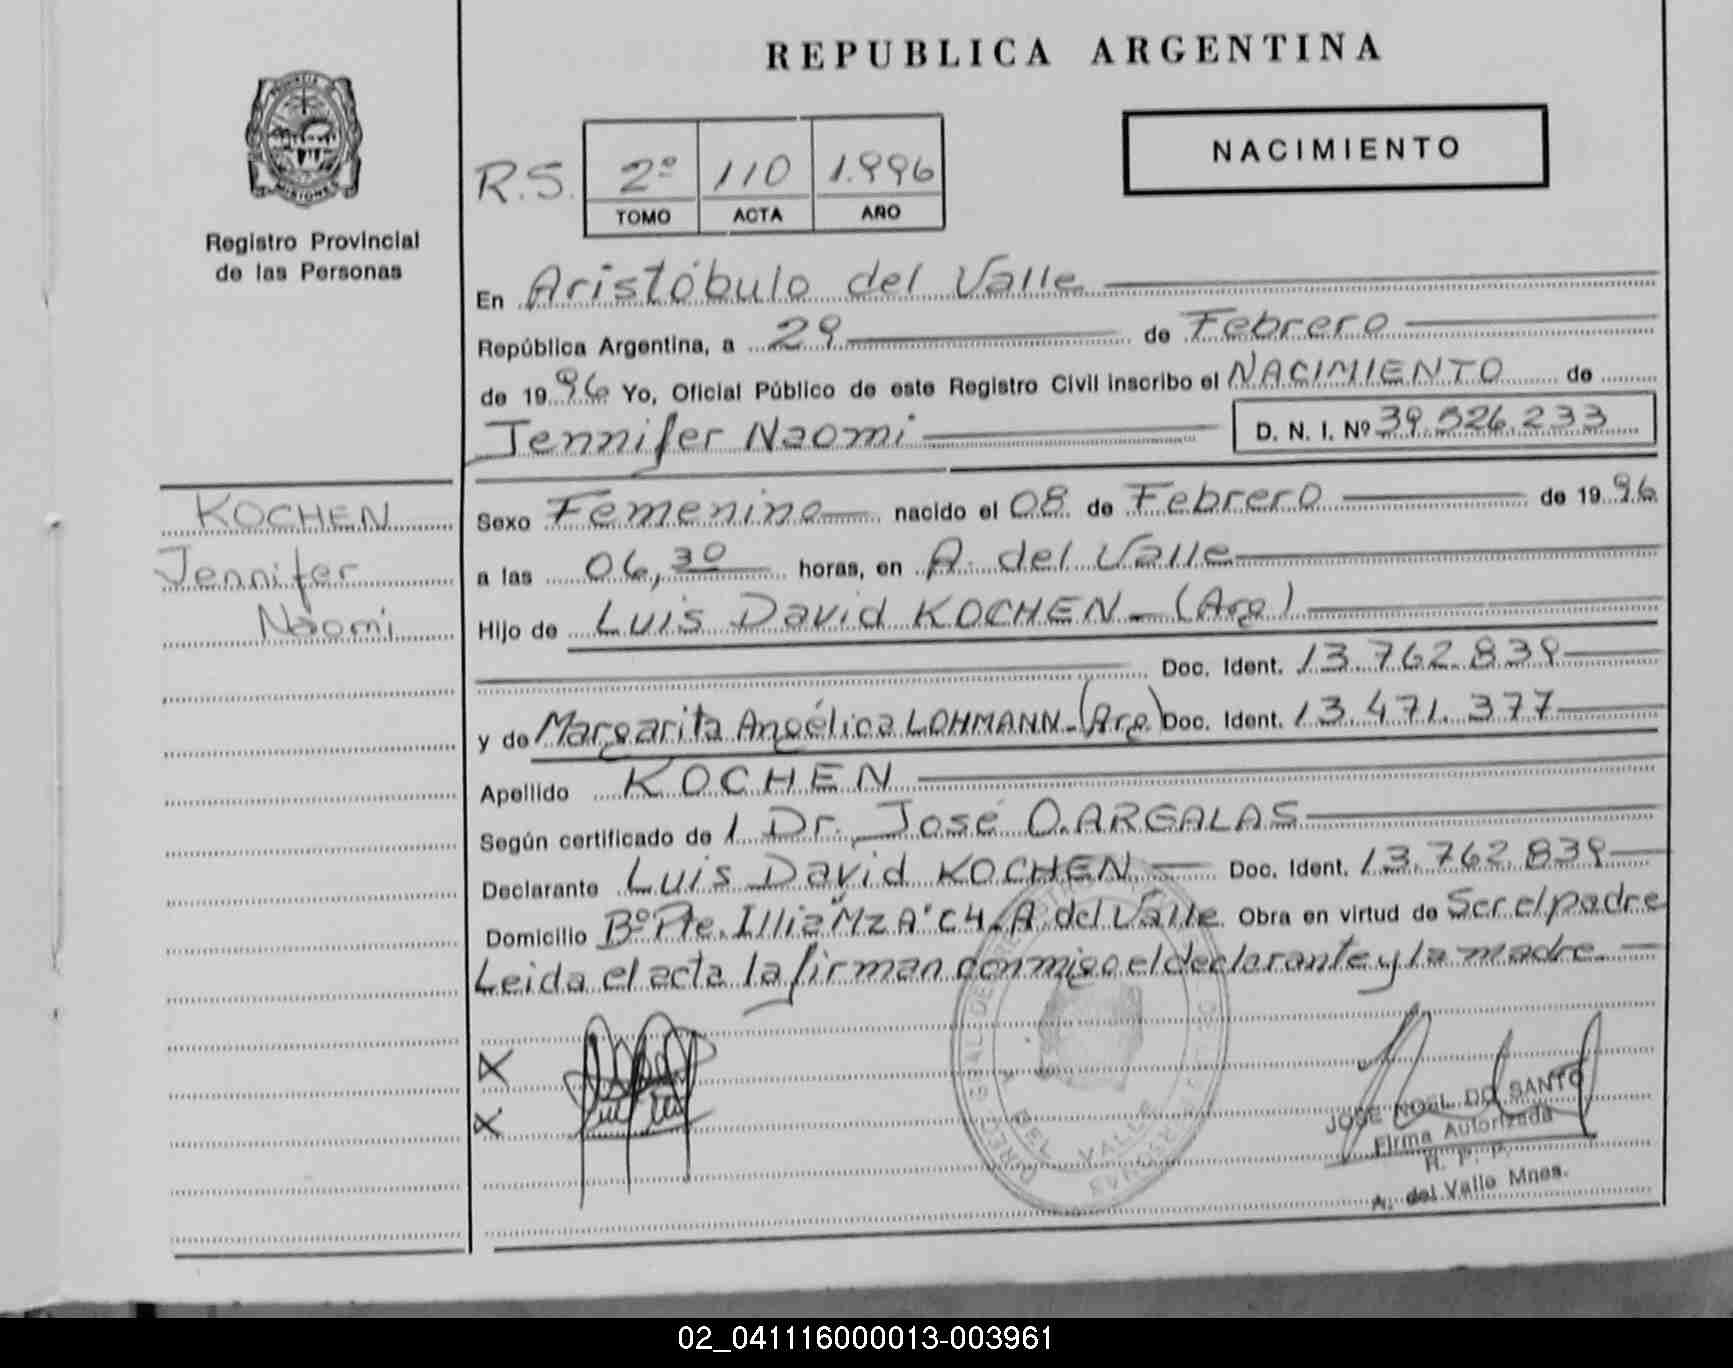 REPUBLICA ARGENTINA
NACIMIENTO
R.S. 2º 110 1.996
TOMO ACTA AÑO
MISIONES
Registro Provincial
de las Personas
En Aristóbulo del Valle
República Argentina, a 29 de Febrero
de 1996 Yo, Oficial Público de este Registro Civil inscribo el NACIMIENTO de
Jennifer Naomi D. N. I. Nº 39.526.233
KOCHEN
Jennifer
Naomi
Sexo Femenino nacido el 08 de Febrero de 1996
a las 06,30 horas, en A. del Valle
Hijo de Luis David KOCHEN - (Arg)
Doc. Ident. 13.762.839
y de Margarita Angélica LOHMANN - (Arg) Doc. Ident. 13.471.377
Apellido KOCHEN
Según certificado de 1 Dr. José O. ARGALAS
Declarante Luis David KOCHEN Doc. Ident. 13.762.839
Domicilio Bº Pte. Illia "Mz A" C4 A. del Valle Obra en virtud de Ser el padre
Leida el acta la firman conmigo el declarante y la madre.
X
X
A. DEL VALLE
JOSE NOEL DO SANTO
Firma Autorizada
R. P. P.
A. del Valle Mnes.
02_041116000013-003961